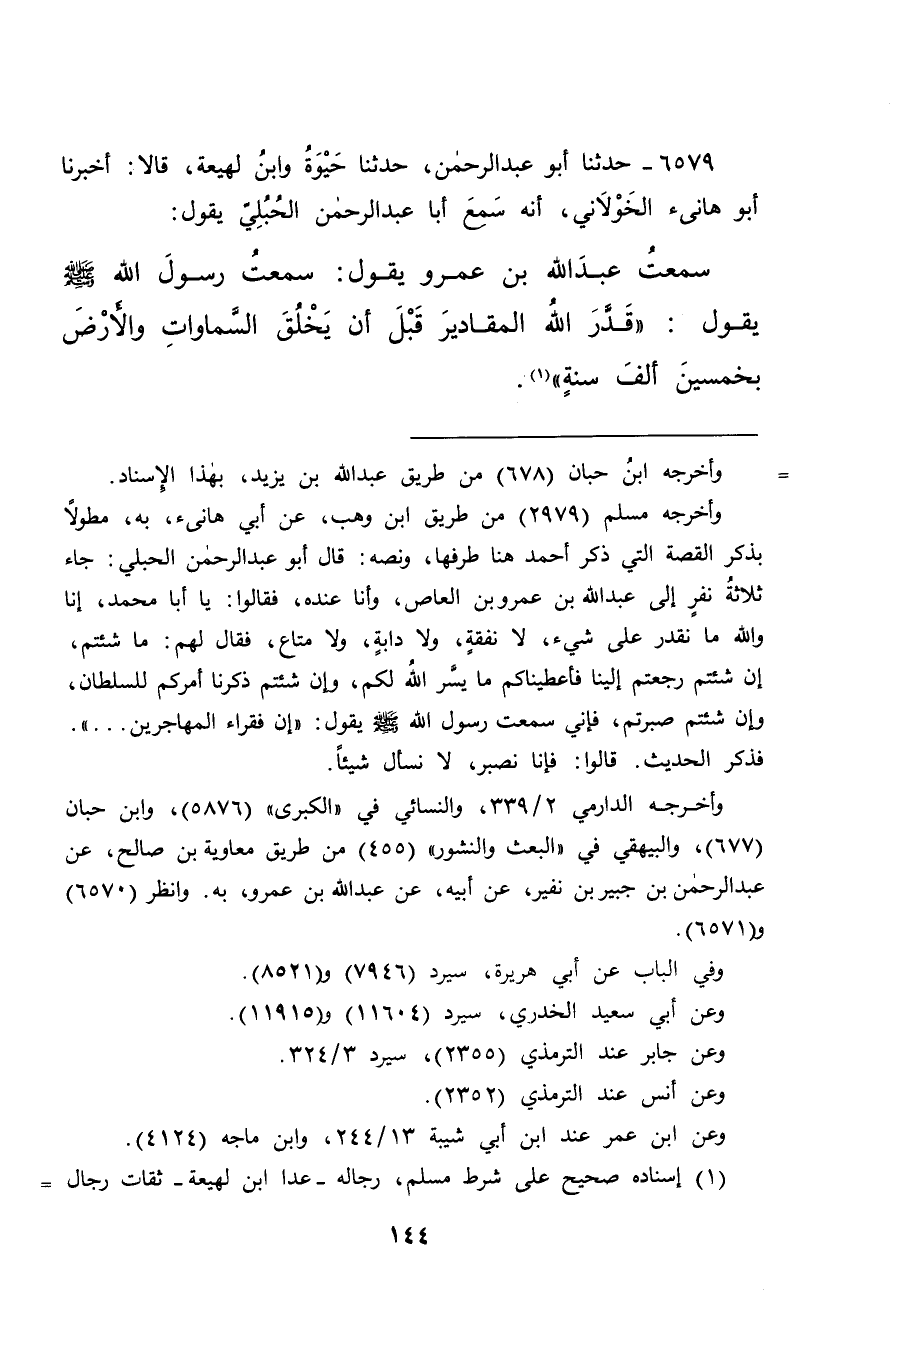 ٦٥٧٩ ـ حدثنا أبو عبدالرحمٰن، حدثنا حَيْوَةُ وابنُ لهيعة، قالا: أخبرنا
أبو هانىء الخَوْلَاني، أنه سَمِعَ أبا عبدالرحمٰن الحُبُلِيّ يقول:
سمعتُ عبـدَالله بن عمـرو يقـول: سمعتُ رسـولَ الله ﷺ
يقـول : «قَـدَّرَ اللهُ المقـاديرَ قَبْلَ أن يَخْلُقَ السَّماواتِ والأَرْضَ
بخمسينَ ألفَ سنةٍ»(١).
= وأخرجه ابنُ حبان (٦٧٨) من طريق عبدالله بن يزيد، بهٰذا الإسناد.
وأخرجه مسلم (٢٩٧٩) من طريق ابن وهب، عن أبي هانىء، به، مطولاً
بذكر القصة التي ذكر أحمد هنا طرفها، ونصه: قال أبو عبدالرحمٰن الحبلي: جاء
ثلاثةُ نفرٍ إلى عبدالله بن عمرو بن العاص، وأنا عنده، فقالوا: يا أبا محمد، إنا
والله ما نقدر على شيء، لا نفقةٍ، ولا دابةٍ، ولا متاع، فقال لهم: ما شئتم،
إن شئتم رجعتم إلينا فأعطيناكم ما يسَّر اللهُ لكم، وإن شئتم ذكرنا أمركم للسلطان،
وإن شئتم صبرتم، فإني سمعت رسول الله ﷺ يقول: «إن فقراء المهاجرين...».
فذكر الحديث. قالوا: فإنا نصبر، لا نسأل شيئاً.
وأخـرجـه الدارمي ٣٣٩/٢، والنسائي في «الكبرى» (٥٨٧٦)، وابن حبان
(٦٧٧)، والبيهقي في «البعث والنشور» (٤٥٥) من طريق معاوية بن صالح، عن
عبدالرحمٰن بن جبير بن نفير، عن أبيه، عن عبدالله بن عمرو، به. وانظر (٦٥٧٠)
و(٦٥٧١).
وفي الباب عن أبي هريرة، سيرد (٧٩٤٦) و(٨٥٢١).
وعن أبي سعيد الخدري، سيرد (١١٦٠٤) و(١١٩١٥).
وعن جابر عند الترمذي (٢٣٥٥)، سيرد ٣٢٤/٣.
وعن أنس عند الترمذي (٢٣٥٢).
وعن ابن عمر عند ابن أبي شيبة ٢٤٤/١٣، وابن ماجه (٤١٢٤).
(١) إسناده صحيح على شرط مسلم، رجاله ـ عدا ابن لهيعة ـ ثقات رجال =
١٤٤